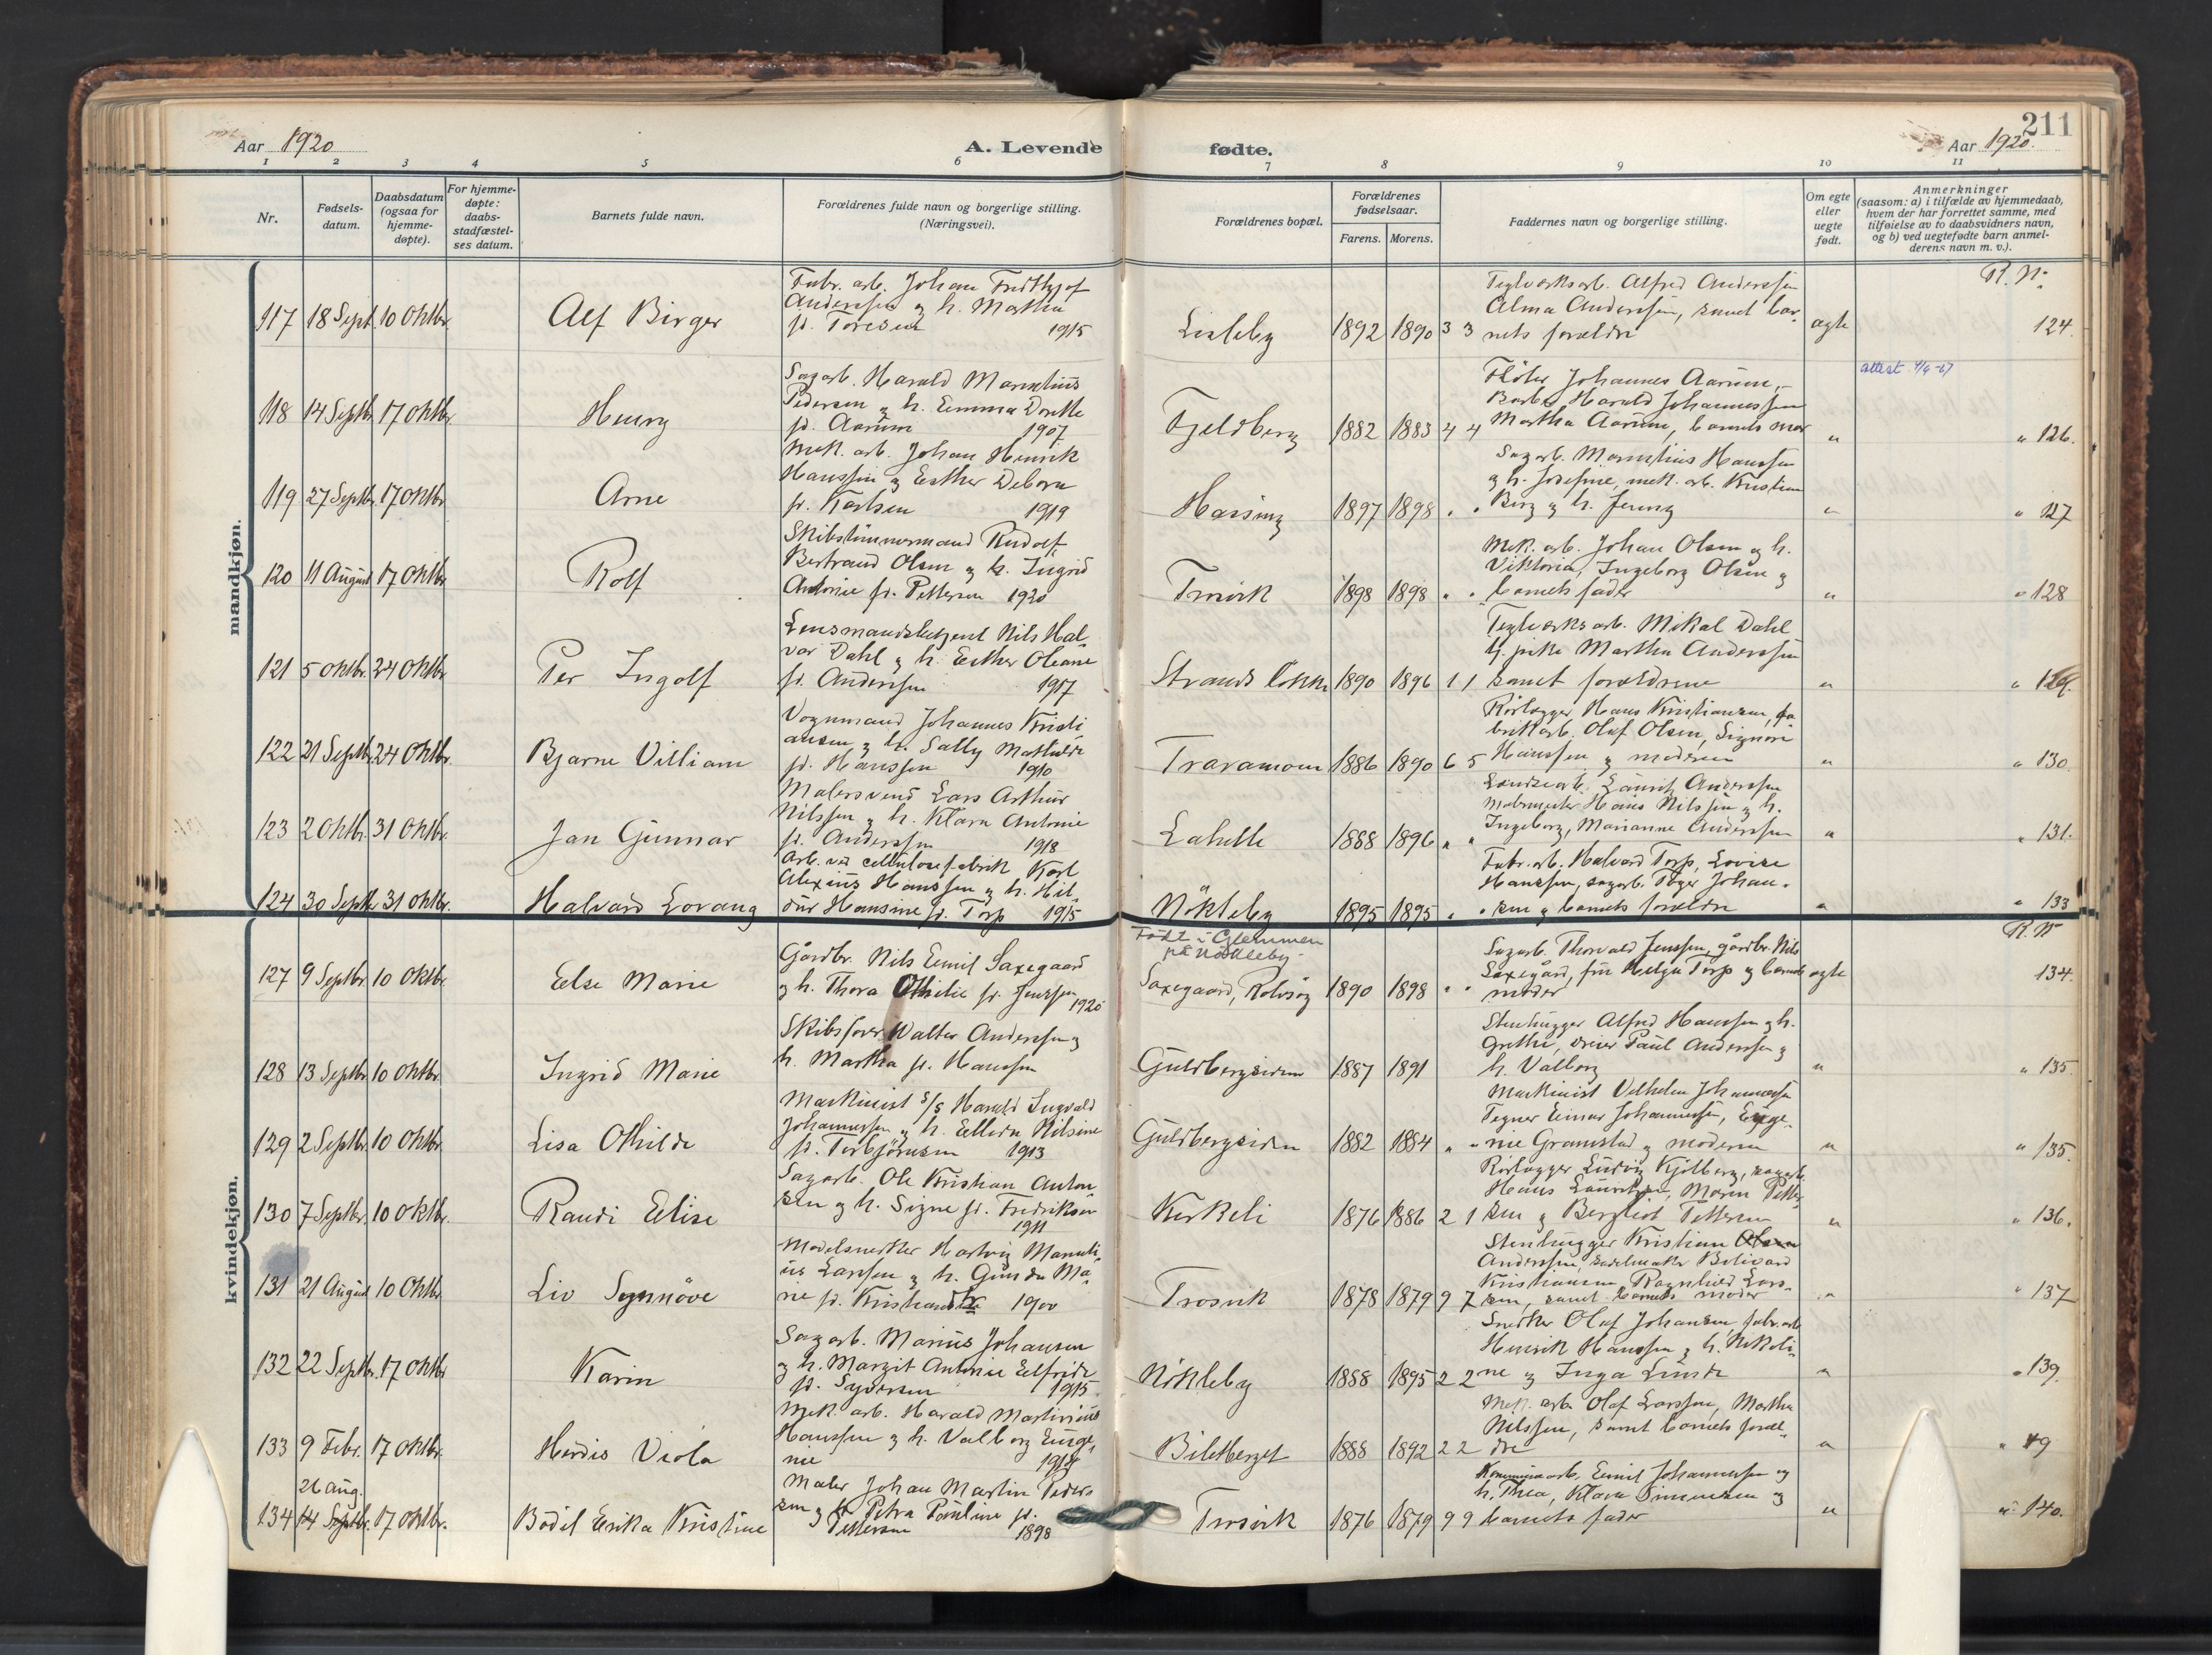 211
Aar 1920
A. Levende
fødte.
Aar 1920.
1 2 3 4 5 6 7 8 9 10 11
Nr.
Fødsels-
datum.
Daabsdatum
(ogsaa for
hjemme-
døpte).
For hjemme-
døpte:
daabs-
stadfæstel-
ses datum.
Barnets fulde navn.
Forældrenes fulde navn og borgerlige stilling.
(Næringsvei).
Forældrenes bopæl.
Forældrenes
fødselsaar.
Farens. Morens.
Faddernes navn og borgerlige stilling.
Om egte
eller
uegte
født.
Anmerkninger
(saasom: a) i tilfælde av hjemmedaab,
hvem der har forrettet samme, med
tilføielse av to daabsvidners navn,
og b) ved uegtefødte barn anmel-
derens navn m. v.).
mandkjøn.
117 18 Sept. 10 Oktbr. Alf Birger
Fabr. arb. Johan Fridthjof
Anderssen og h. Martha
fd. Toresen 1915
Lisleby 1892 1890 3 3
Teglverksarb. Alfred Anderssen
Alma Anderssen, samt bar-
nets forældre
egte
R. N.
124.
118 14 Septbr. 17 Oktbr. Henry
Sagarb. Harald Marselius
Pedersen og h. Emma Dorthe
fd. Aarum 1907
Fjeldberg 1882 1883 4 4
Fløter Johannes Aarum,
Barber Harald Johannessen
Martha Aarum, barnets mor
"
attest 4/4-67
" 126.
119 27 Septbr. 17 Oktbr. Arne
Mek. arb. Johan Henrik
Hanssen og Esther Debora
fd. Karlsen 1919
1897 1898 " "
Sagarb. Marselius Hanssen
og h. Josefine, mek. arb. Kristian
Berg og h. Jenny
"
" 127
120 11 August 17 Oktbr. Rolf
Skibstømmermand Rudolf
Bertrand Olsen og h. Ingrid
Antonie fd. Pettersen 1920
Trosvik 1898 1898 " "
Mek. arb. Johan Olsen og h.
Viktoria, Ingeborg Olsen og
barnets fader
"
" 128
121 5 Oktbr. 24 Oktbr. Per Ingolf
Lensmandsbetjent Nils Hal-
vor Dahl og h. Esther Oleane
fd. Anderssen 1917
Strands løkke 1890 1896 1 1
Teglverksarb. Mikal Dahl
tj. pike Martha Anderssen
samt forældrene
"
" 129.
122 21 Septbr. 24 Oktbr. Bjarne Villiam
Vognmand Johannes Kristi
ansen og h. Sally Mathilde
fd. Hanssen 1910
Traramoen 1886 1890 6 5
Rørlægger Hans Kristiansen, fa-
brikarb. Olaf Olsen, Signora
Hanssen og moderen
"
" 130
123 2 Oktbr. 31 Oktbr. Jan Gunnar
Malersvend Lars Arthur
Nilssen og h. Klara Antonie
fd. Anderssen 1918
Lahelle 1888 1896 " "
Lauritz Anderssen
Malermester Hans Nilssen og h.
Ingeborg, Marianne Anderssen
"
" 131.
124 30 Septbr. 31 Oktbr. Halvard Lorang
Arb. ved cellulosefabrik Karl
Alexius Hanssen og h. Hil-
dur Hansine fd. Torp 1915
Nøkleby 1895 1895 " "
Fabr. arb. Halvard Torp, Lovise
Hanssen, sagarb. Roger Johan-
sen og barnets forældre
"
" 133
kvindekjøn.
127 9 Septbr. 10 Oktbr. Else Marie
Gårdbr. Nils Emil Saxegaard
og h. Thora Othilie fd. Jenssen
1920
Født i Glemmen
på Nøkleby.
Saxegaard, Rolvsøy 1890 1898 " "
Sagarb. Thorvald Jenssen, gårdbr. Nils
Saxegård, fru Helga Torp og barnets
moder
egte
R. N.
134.
128 13 Septbr. 10 Oktbr. Ingrid Marie
Skibsfører Walter Anderssen og
h. Martha fd. Hanssen
Guldbergsiden 1887 1891
Stenhugger Alfred Hanssen og h.
Grethe, dreier Paul Anderssen og
h. Valborg
"
" 135.
129 2 Septbr. 10 Oktbr. Lisa Othilde
Maskinist S/S Harald Ingvald
Johannessen og h. Ellida Nilsine
fd. Torbjørnsen 1913
Guldbergsiden 1882 1884 " "
Maskinist Vilhelm Johannessen
Tegner Einar Johannessen, Euge-
nie Gramstad og moderen
"
" 135.
130 7 Septbr. 10 Oktbr. Randi Elise
Sagarb. Ole Kristian Anton
sen og h. Signe fd. Fredriksen
1911
Kirkeli 1876 1886 2 1
Rørlægger Ludvig Kjølberg, sagarb.
Hans Lauritzen, Maren Petter-
sen og Bergliot Pettersen
"
" 136.
131 21 August 10 Oktbr. Liv Synnøve
Modelsnedker Hartvig Manuli-
us Larssen og h. Gunda Ma-
rie fd. 1900
Trosvik 1878 1879 9 7
Stenhugger Kristian Olsen
Anderssen, sadelmaker Bolivard
Kristiansen, Ragnhild Lars-
sen, samt barnets moder
"
" 137
132 22 Septbr. 17 Oktbr. Karin
Sagarb. Marius Johansen
og h. Margit Antonie Elfride
fd. Syversen 1915.
Nøkleby 1888 1895 2 2
Snedker Olaf Johansen, fabr. arb.
Henrik Hanssen og h. Nikoli-
ne og Inga Lunde
"
" 139.
133 9 Febr. 17 Oktbr. Herdis Viola
Mek. arb. Harald Martinius
Hanssen og h. Valborg Euge-
nie 1914
Biletberget 1888 1892 2 2
Mek. arb. Olaf Larssen, Martha
Nilssen, samt barnets foræl-
dre
"
" 49
26 Aug.
134 14 Septbr. 17 Oktbr. Bodil Erika Kristine
Maler Johan Martin Peder-
sen og h. Petra Pauline fd.
Pettersen 1898
Trosvik 1876 1879 9 9
Kommunearb. Emil Johannessen og
h. Thea, Klara Simensen og
barnets fader
"
" 140.